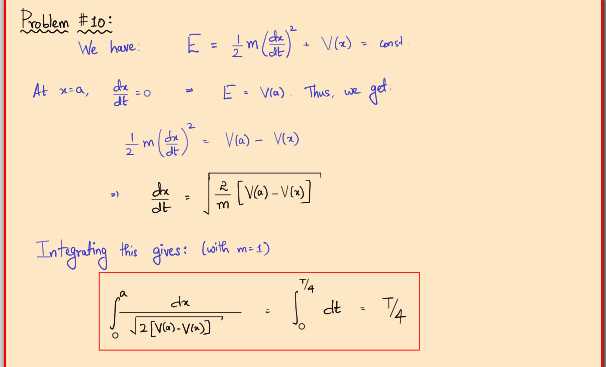 Problem #10:
We have. E = 1/2 m (dx/dt)² + V(x) = const.
At x=a, dx/dt = 0 ⇒ E = V(a). Thus, we get.
1/2 m (dx/dt)² = V(a) - V(x)
⇒ dx/dt = √(2/m [V(a) - V(x)])
Integrating this gives: (with m=1)
∫₀ᵃ dx/√(2[V(a)-V(x)]) = ∫₀^(T/4) dt = T/4